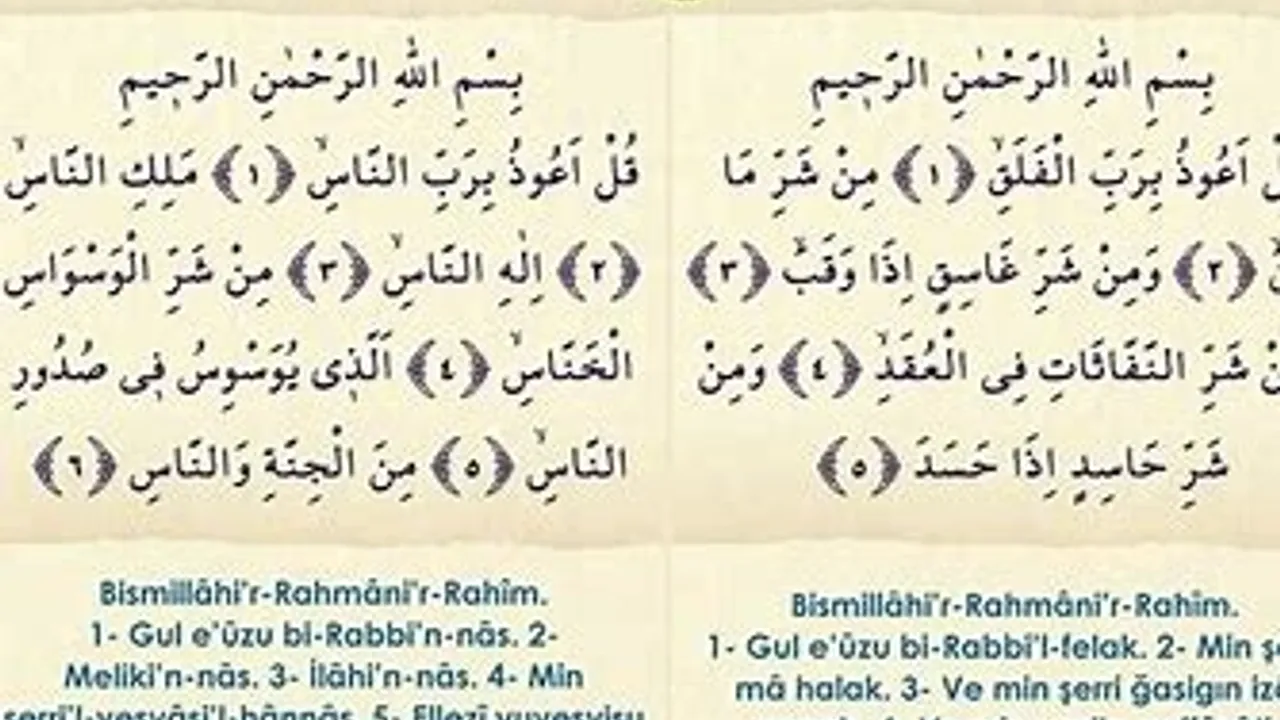 بِسْمِ اللّٰهِ الرَّحْمٰنِ الرَّحٖيمِ
اَعُوذُ بِرَبِّ الْفَلَقِۙ ﴿١﴾ مِنْ شَرِّ مَا
﴿٢﴾ وَمِنْ شَرِّ غَاسِقٍ اِذَا وَقَبَۙ ﴿٣﴾
شَرِّ النَّفَّاثَاتِ فِى الْعُقَدِۙ ﴿٤﴾ وَمِنْ
شَرِّ حَاسِدٍ اِذَا حَسَدَ ﴿٥﴾
Bismillâhi'r-Rahmâni'r-Rahîm.
1- Gul e'ûzu bi-Rabbi'l-felak. 2- Min
mâ halak. 3- Ve min şerri ğasigın
بِسْمِ اللّٰهِ الرَّحْمٰنِ الرَّحٖيمِ
قُلْ اَعُوذُ بِرَبِّ النَّاسِۙ ﴿١﴾ مَلِكِ النَّاسِۙ
﴿٢﴾ اِلٰهِ النَّاسِۙ ﴿٣﴾ مِنْ شَرِّ الْوَسْوَاسِ
الْخَنَّاسِۙ ﴿٤﴾ اَلَّذٖى يُوَسْوِسُ فٖى صُدُورِ
النَّاسِۙ ﴿٥﴾ مِنَ الْجِنَّةِ وَالنَّاسِ ﴿٦﴾
Bismillâhi'r-Rahmâni'r-Rahîm.
1- Gul e'ûzu bi-Rabbi'n-nâs. 2-
Meliki'n-nâs. 3- İlâhi'n-nâs. 4- Min
şerri'l-vesvâsi'l-hânnâs. 5- Ellezî yuvesvisu